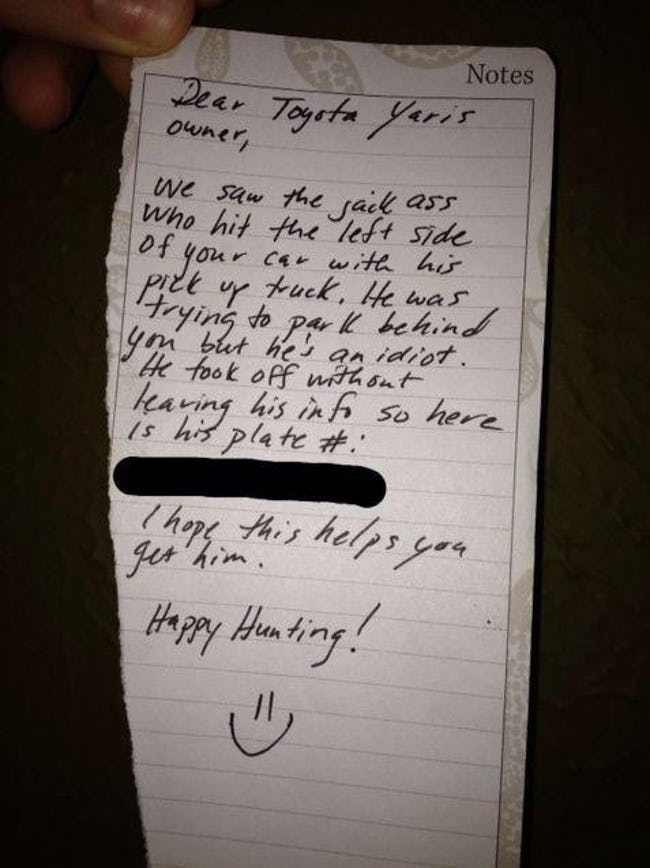 Notes
Dear Toyota Yaris
owner,
We saw the jack ass
who hit the left side
of your car with his
pick up truck. He was
trying to park behind
you but he's an idiot.
He took off without
leaving his info so here
is his plate #:
I hope this helps you
get him.
Happy Hunting!